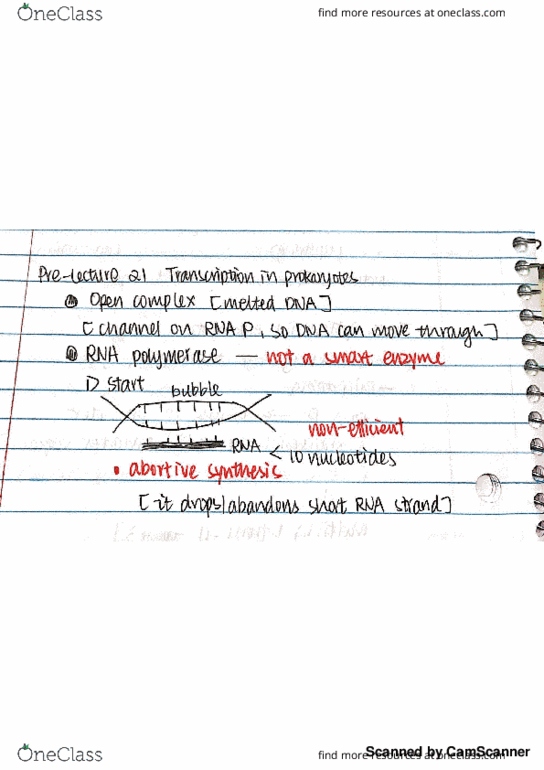 OneClass
find more resources at oneclass.com
Pre-lecture 21 Transcription in prokaryotes
Open complex [melted DNA]
[channel on RNA P, so DNA can move through]
RNA polymerase — not a smart enzyme
1) start
bubble
non-efficient
RNA < 10 nucleotides
• abortive synthesis
[it drops/abandons short RNA strand]
OneClass
find more resources at oneclass.com
Scanned by CamScanner